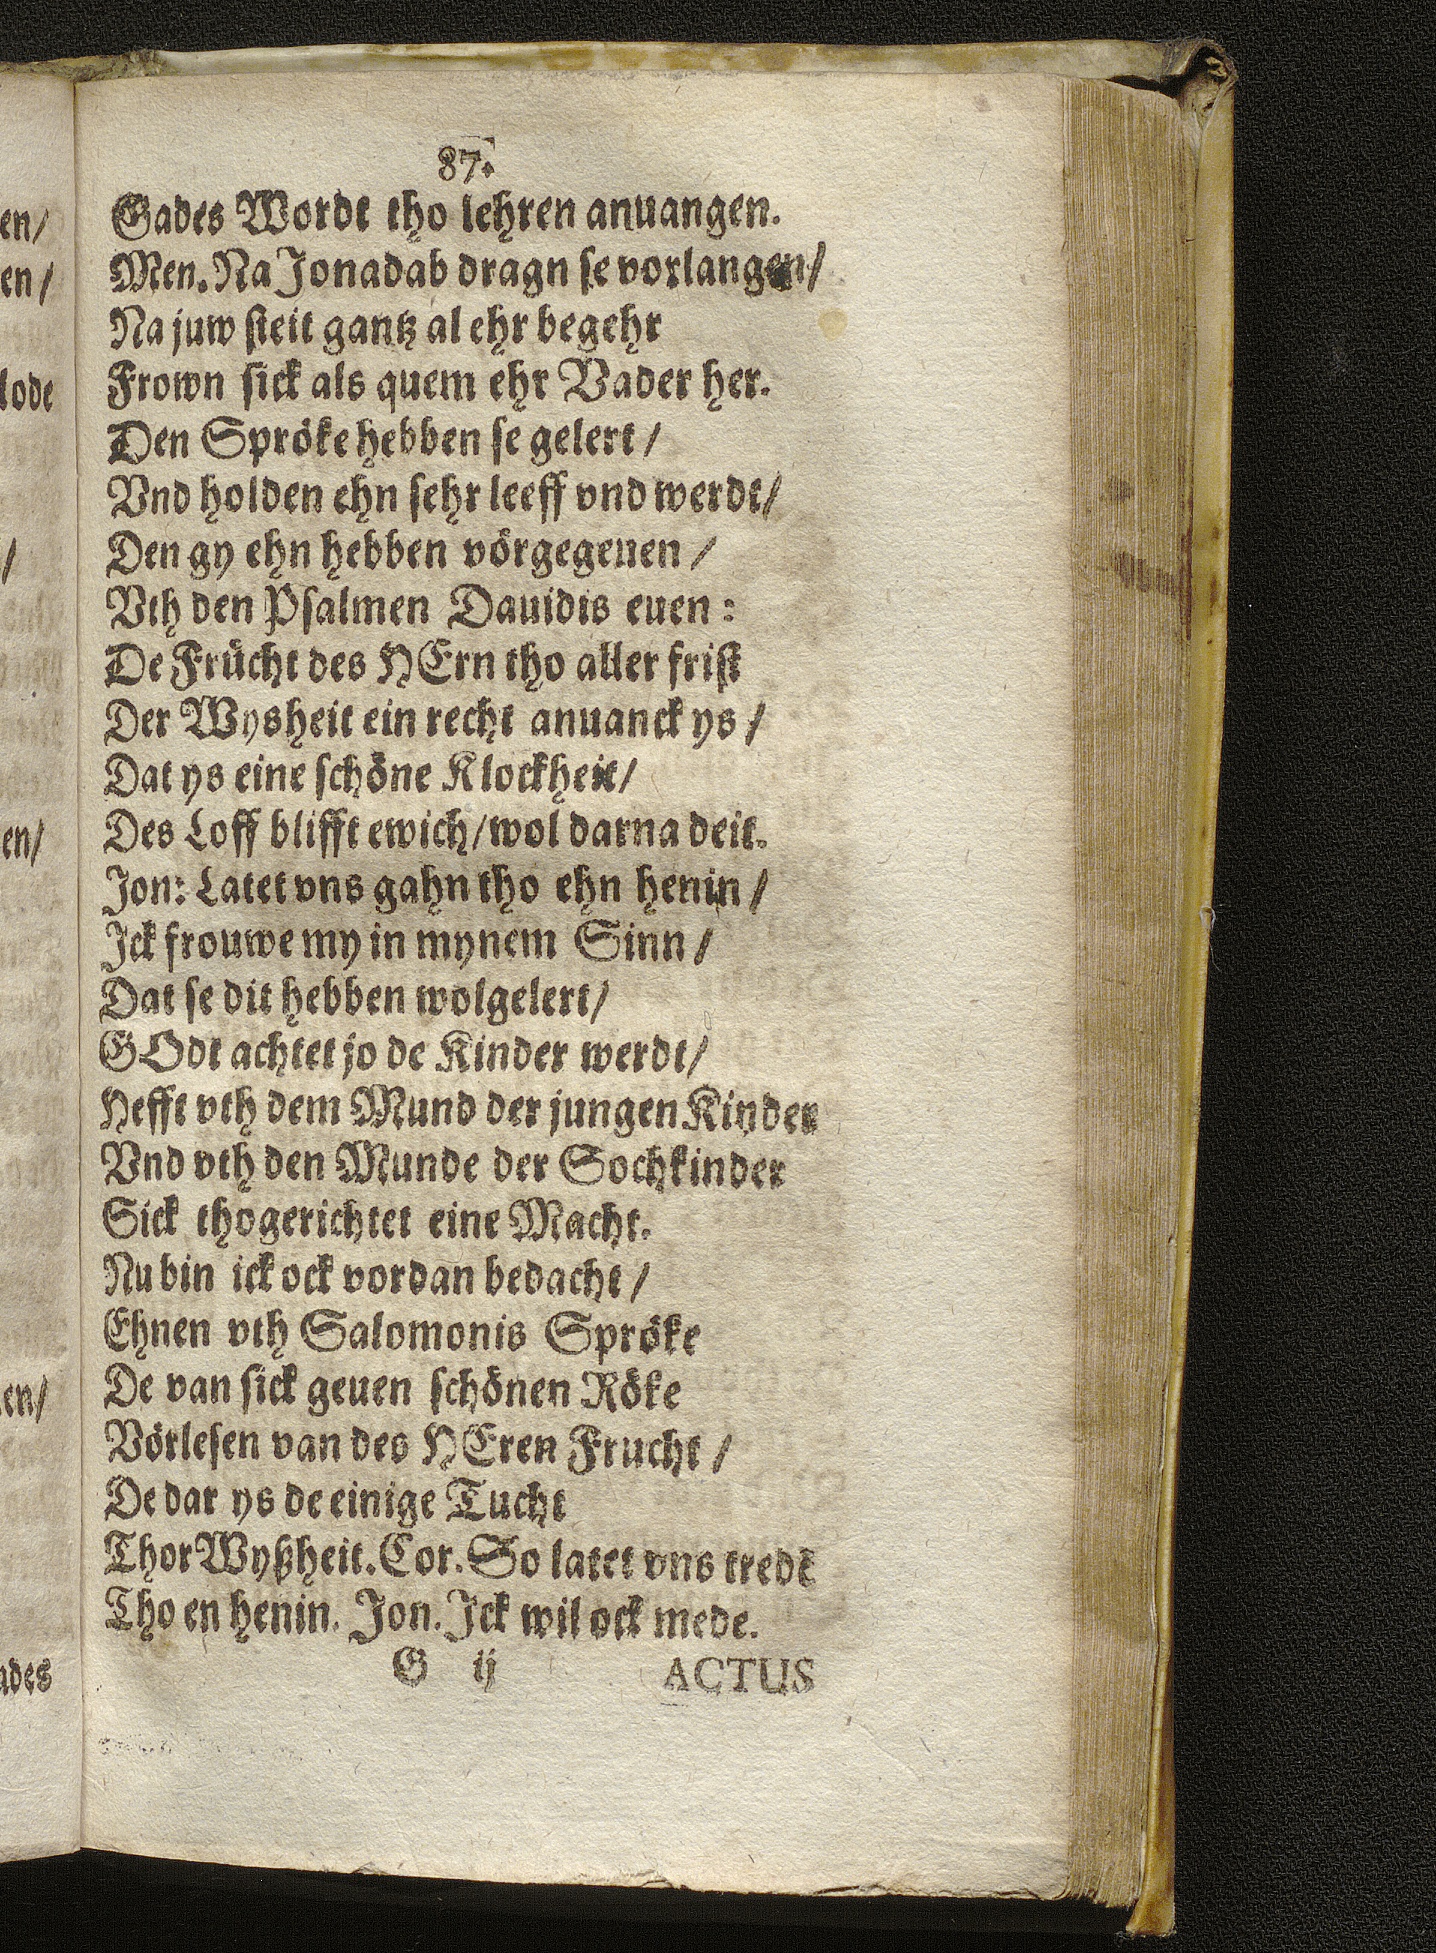 87.
Gades Wordt tho lehren anuangen.
Men. Na Jonadab dragn se vorlangen/
Na juw steit gantz al ehr begehr
Frown sick als quem ehr Vader her.
Den Spröke hebben se gelert/
Vnd holden ehn sehr leeff vnd werdt/
Den gy ehn hebben vörgegeuen/
Vth den Psalmen Dauidis euen:
De Frücht des HErn tho aller frist
Der Wysheit ein recht anuanck ys/
Dat ys eine schöne Klockheit/
Des Loff blifft ewich/wol darna deit.
Jon: Latet vns gahn tho ehn henin/
Jck frouwe my in mynem Sinn/
Dat se dit hebben wolgelert/
GOdt achtet jo de Kinder werdt/
Hefft vth dem Mund der jungen Kinder
Vnd vth den Munde der Sochkinder
Sick thogerichtet eine Macht.
Nu bin ick ock vordan bedacht/
Ehnen vth Salomonis Spröke
De van sick geuen schönen Röke
Vörlesen van des HEren Frucht/
De dar ys de einige Tucht
Thor Wyßheit. Cor. So latet vns tredē
Tho en henin. Jon. Jck wil ock mede.
G ij ACTUS
en/
en/
lode
/
en/
en/
ades